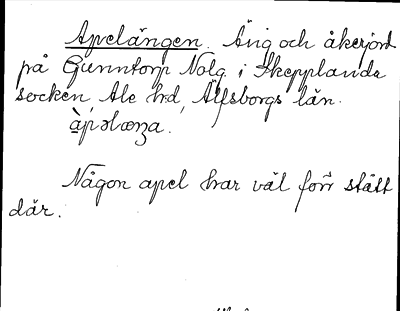 Apelängen. Äng och åkerjord
på Gunntorp Nolg. i Skepplanda
socken, Ale hrd, Älfsborgs län.
àpəlæŋa.
Någon apel har väl förr stått
där.